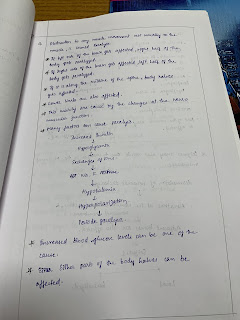 * Obstruction to any muscle movement and inability of the
muscle, is termed Paralysis.
* If left side of the brain gets affected, right half of the
body gets paralyzed.
* If right side of the brain gets affected, left half of the
body gets paralyzed.
* If it is along the midline of the spine, body halves
gets affected.
* Lower limbs are also affected.
* This inability are caused by the changes at the neuro
muscular junction.
* Many factors can cause paralysis.
Increased Insulin
↓
Hyperglycemia
↓
↓
↓
Hypokalemia
↓
Hyperpolarization
↓
Periodic paralysis
* Increased Blood glucose levels can be one of the
cause.
* Either part of the body halves can be
affected.